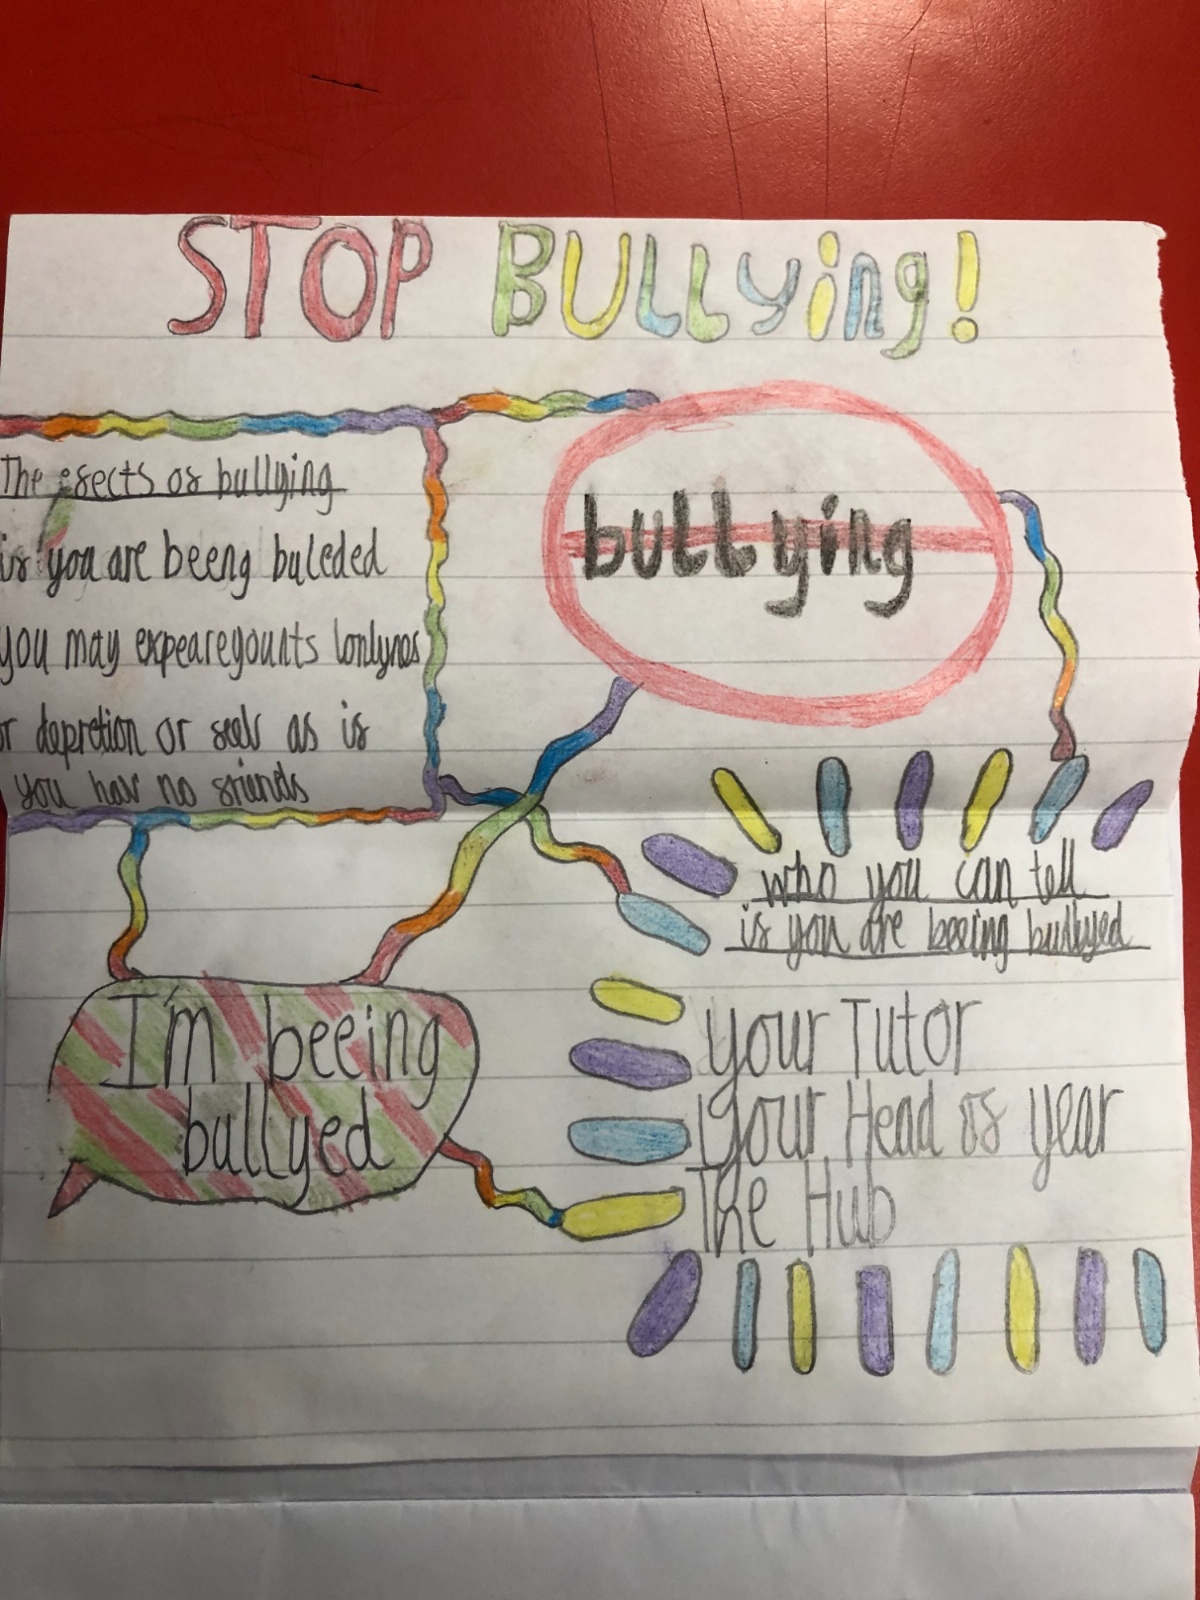 STOP BULLying!
bullying
The efects of bullying
if you are beeng buleded
you may expeareyounts lonlynes
or depretion or feelr as if
you hav no friends
who you can tell
if you are beeing bullyed
I'm beeing
bullyed
your Tutor
your Head of year
The Hub